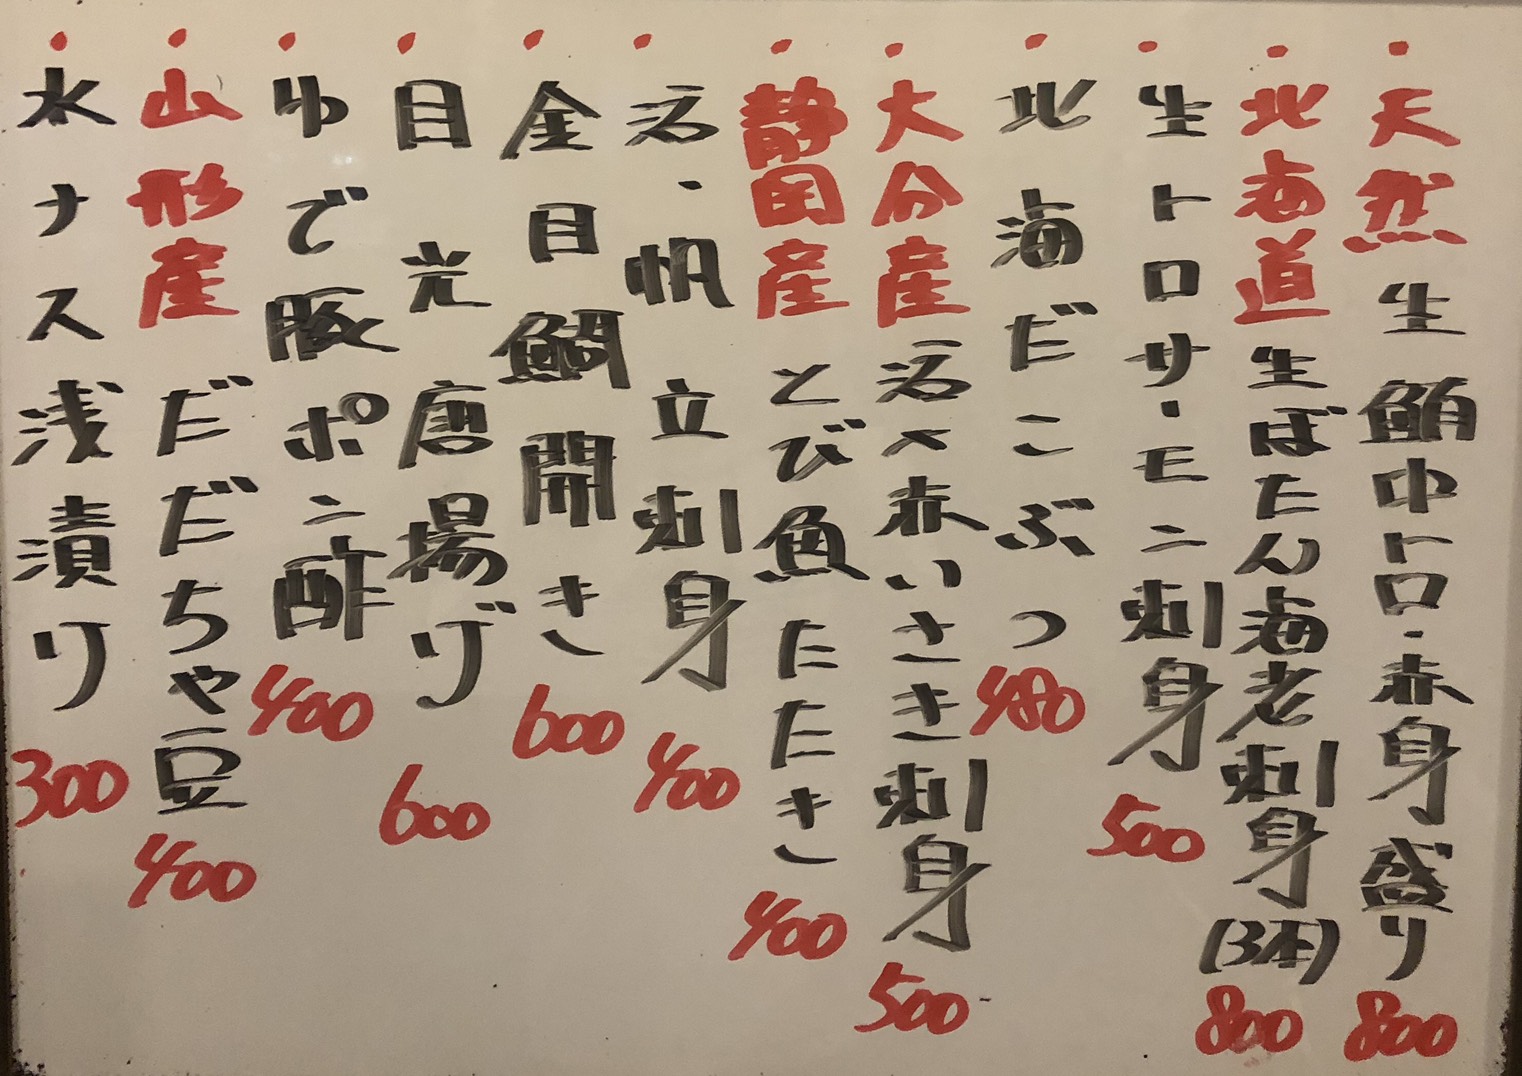 天然生鮪中トロ・赤身盛り 800
北海道生ぼたん海老刺身(3本) 800
生トロサーモン刺身 500
北海だこぶつ 480
大分産活〆赤いさき刺身 500
静岡産とび魚たたき 400
活・帆立刺身 400
金目鯛開き 600
目光唐揚げ 600
ゆで豚ポン酢 400
山形産だだちゃ豆 400
水ナス浅漬け 300